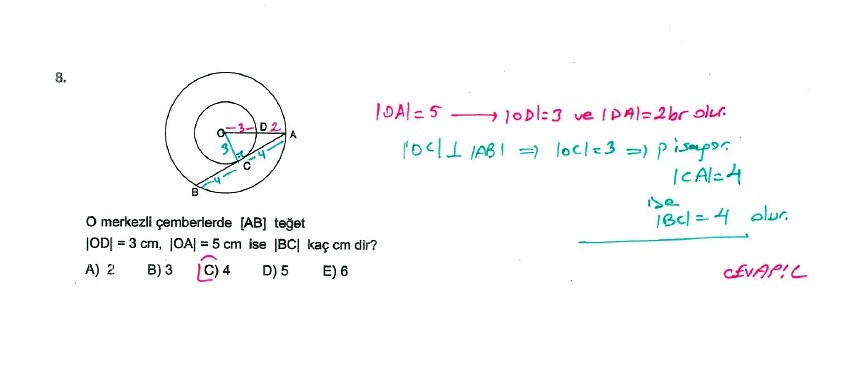 8.
O
3
D
2
A
3
4
C
4
B
O merkezli çemberlerde [AB] teğet
|OD| = 3 cm, |OA| = 5 cm ise |BC| kaç cm dir?
A) 2 B) 3 C) 4 D) 5 E) 6
|OA|=5 → |OD|=3 ve |DA|=2br olur.
|OC|⊥|AB| ⇒ |OC|=3 ⇒ pisagor.
|CA|=4
ise
|BC|=4 olur.
CEVAP: C